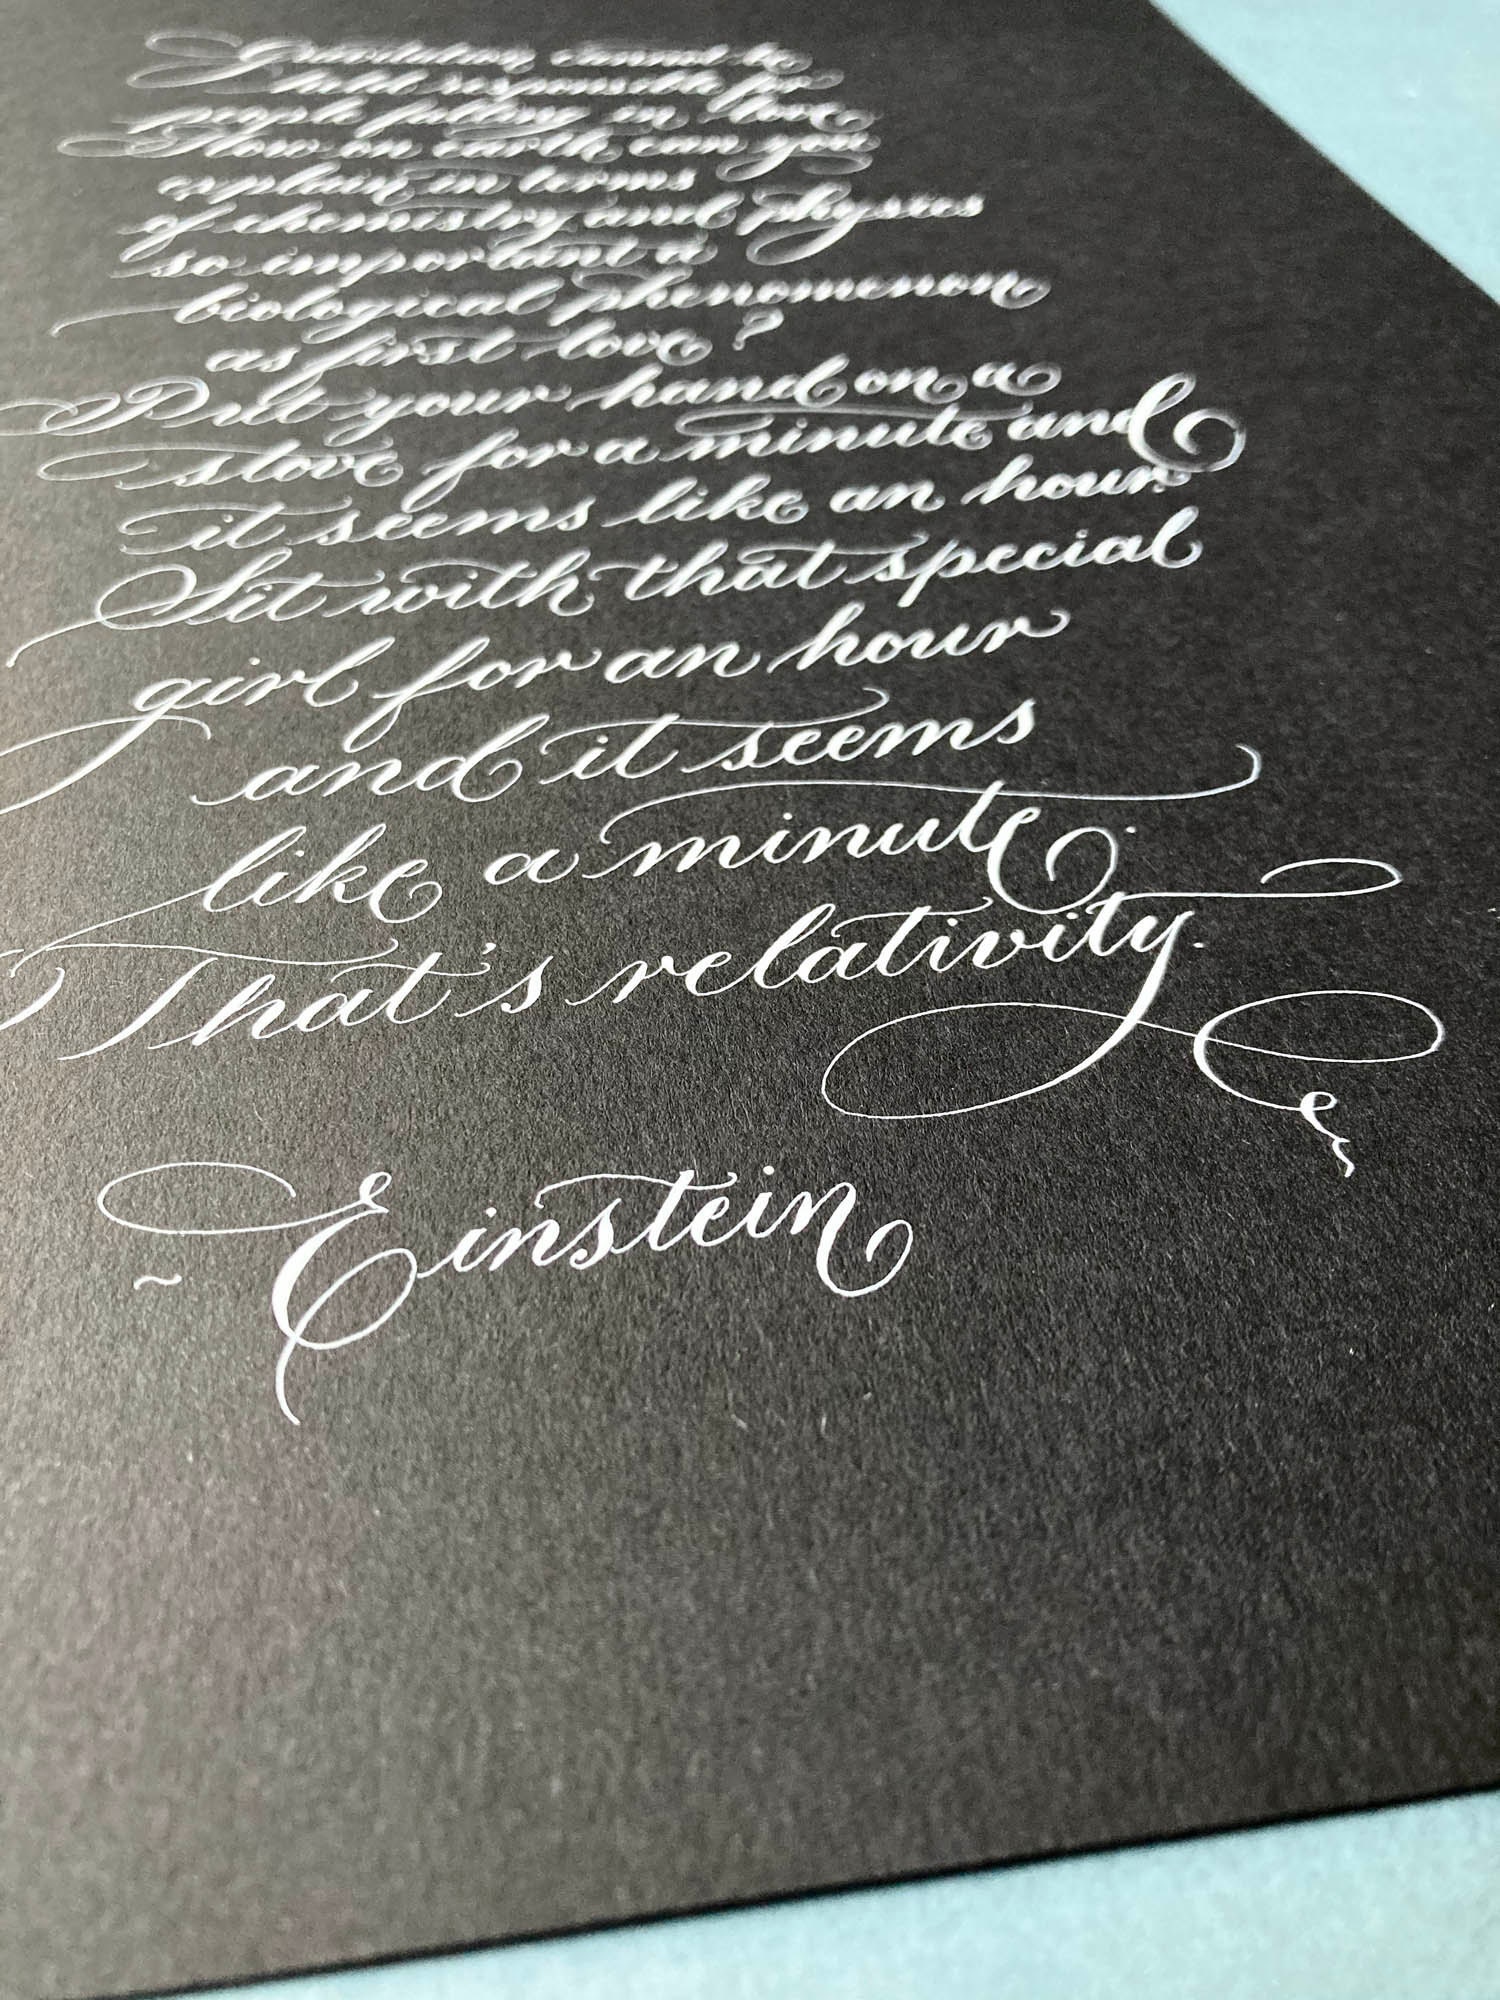 Gravitation cannot be
held responsible for
people falling in love
How on earth can you
explain in terms
of chemistry and physics
so important a
biological phenomenon
as first love?
Put your hand on a
stove for a minute and
it seems like an hour.
Sit with that special
girl for an hour
and it seems
like a minute.
That's relativity.
~ Einstein